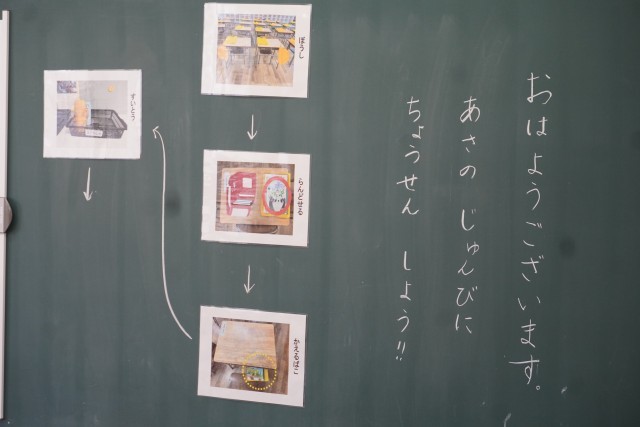 おはようございます。
あさの じゅんびに
ちょうせん しよう!!
ぼうし
らんどせる
かえるばこ
すいとう